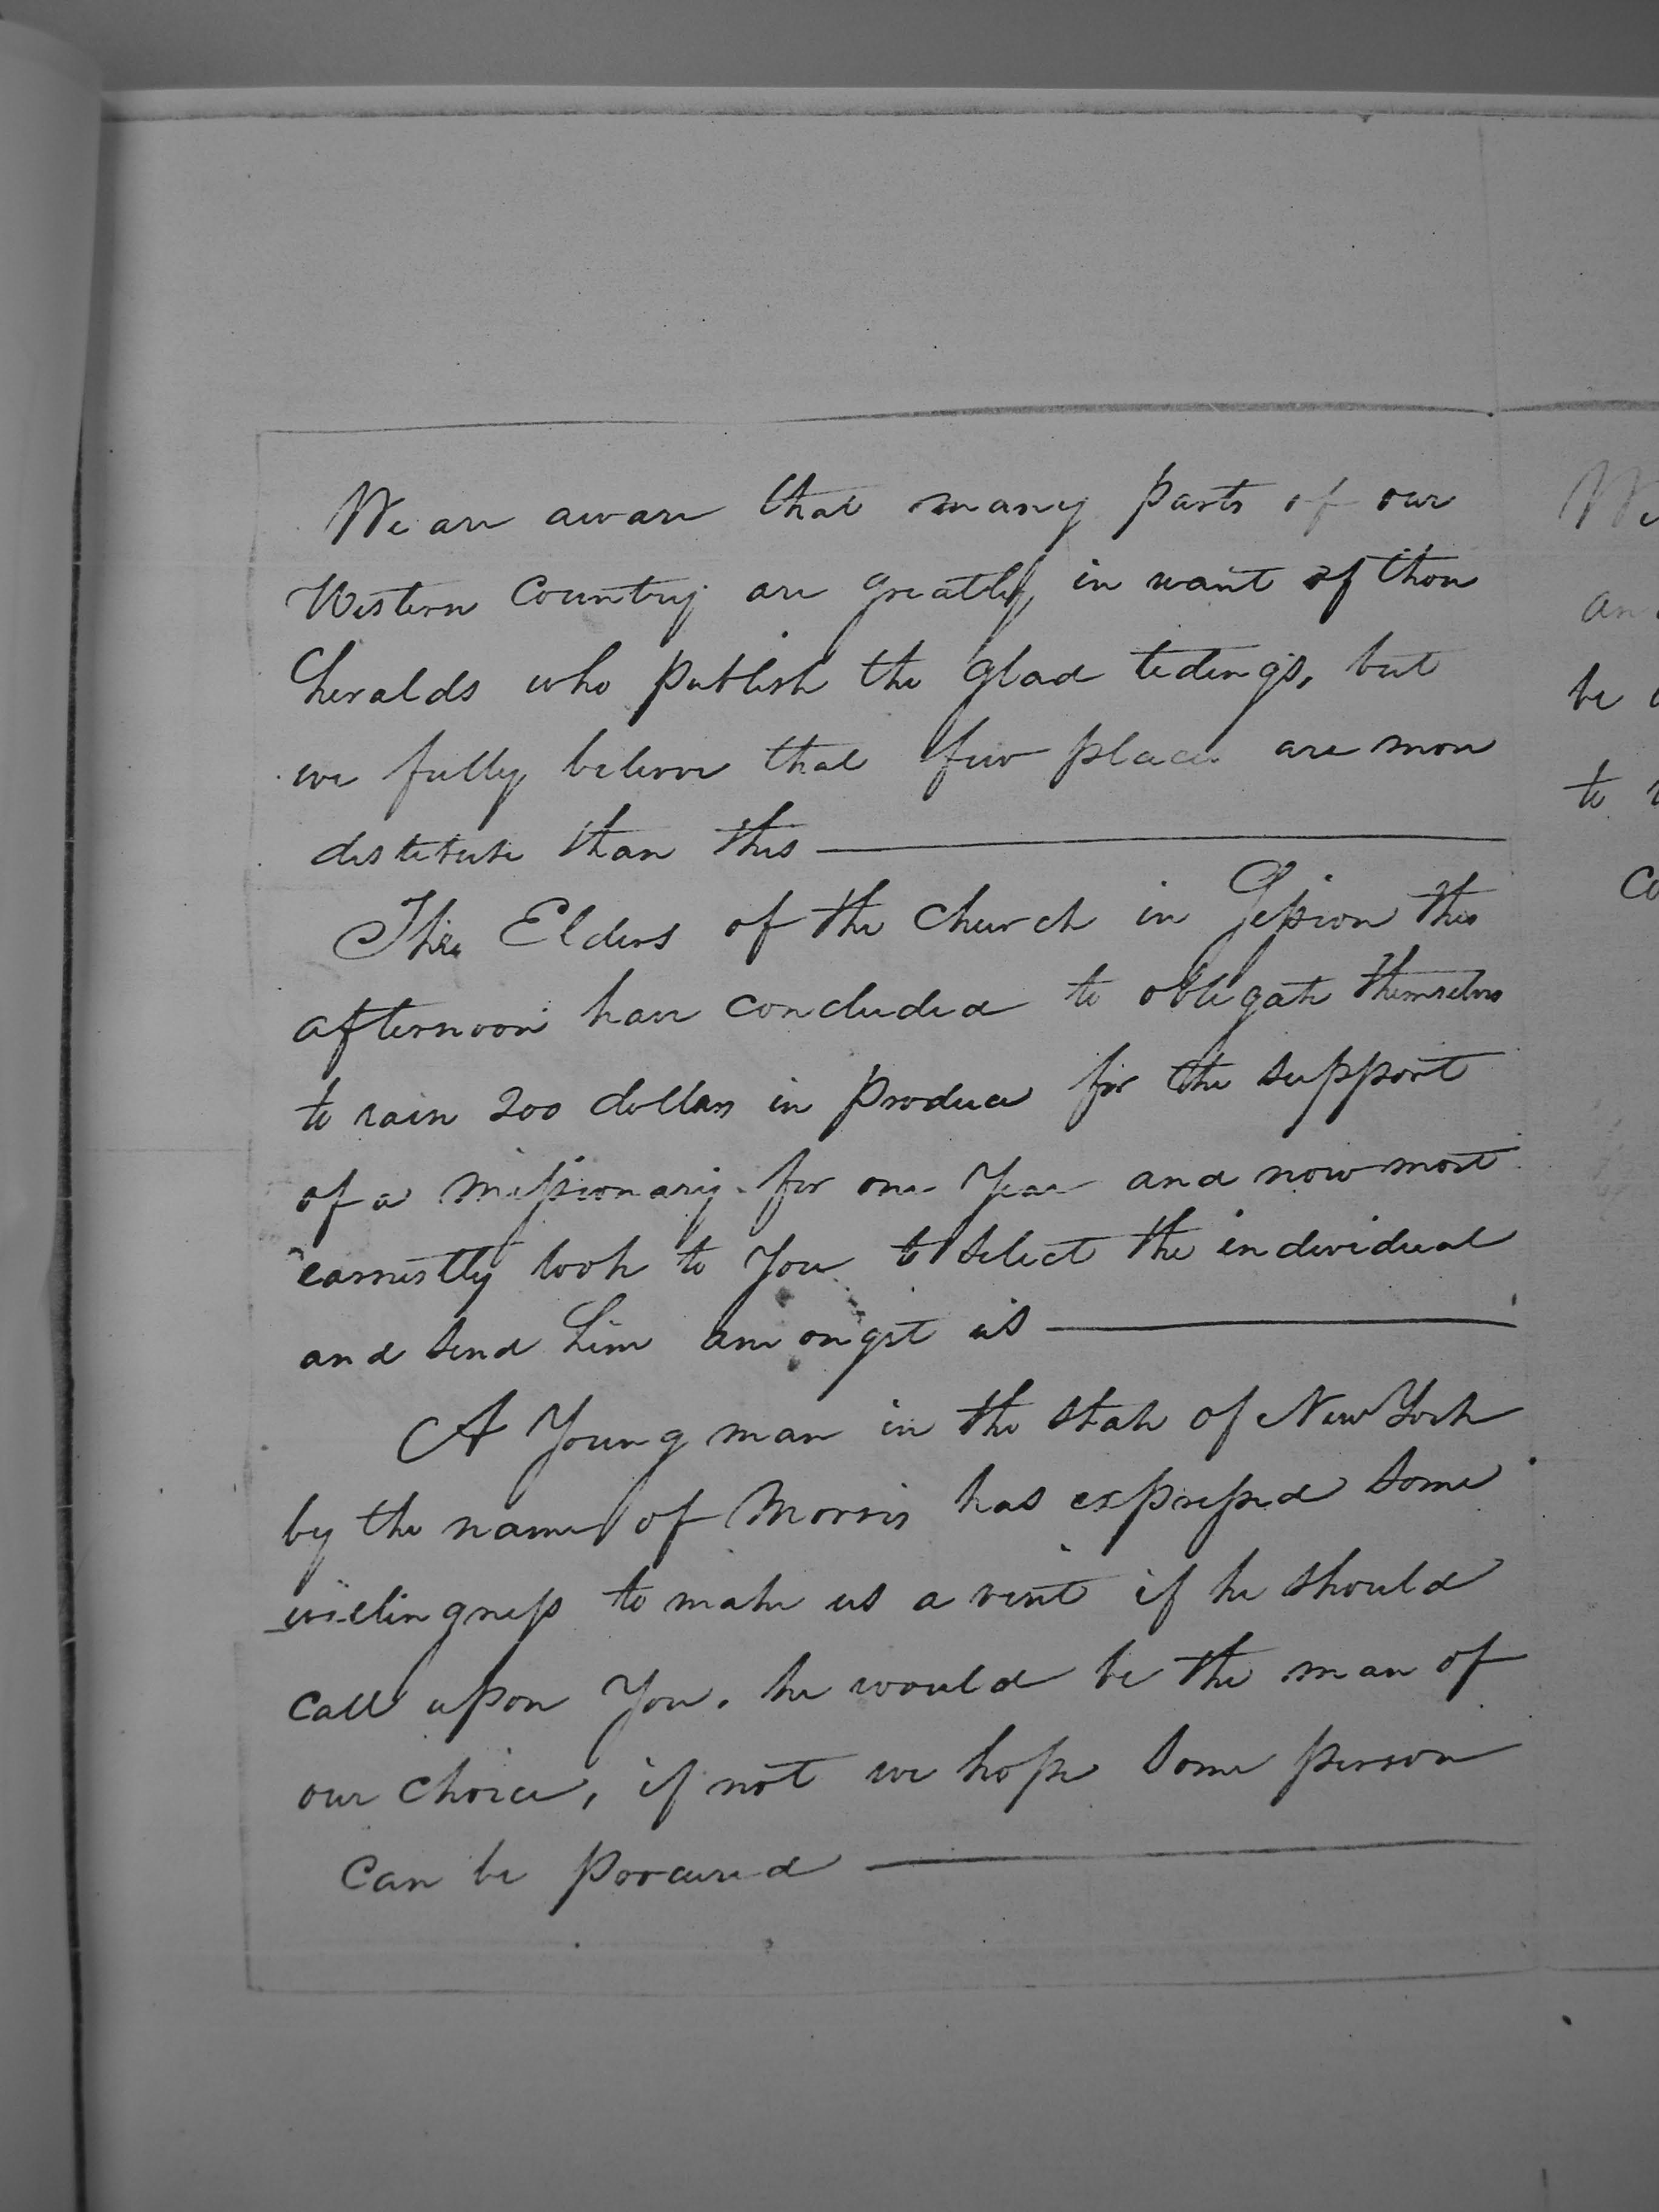 We are aware that many parts of our
Western Country are greatly in want of those
heralds who publish the glad tidings, but
we fully believe that few places are more
destitute than this —
The Elders of the Church in Session this
afternoon have concluded to obligate themselves
to raise 200 dollars in produce for the support
of a Missionary for one Year and now most
earnestly look to You to select the individual
and send him amongst us —
A Young man in the State of New York
by the name of Morris has expressed some
willingness to make us a visit if he should
call upon You. he would be the man of
our choice, if not we hope some person
can be procured —
We
an
be
to